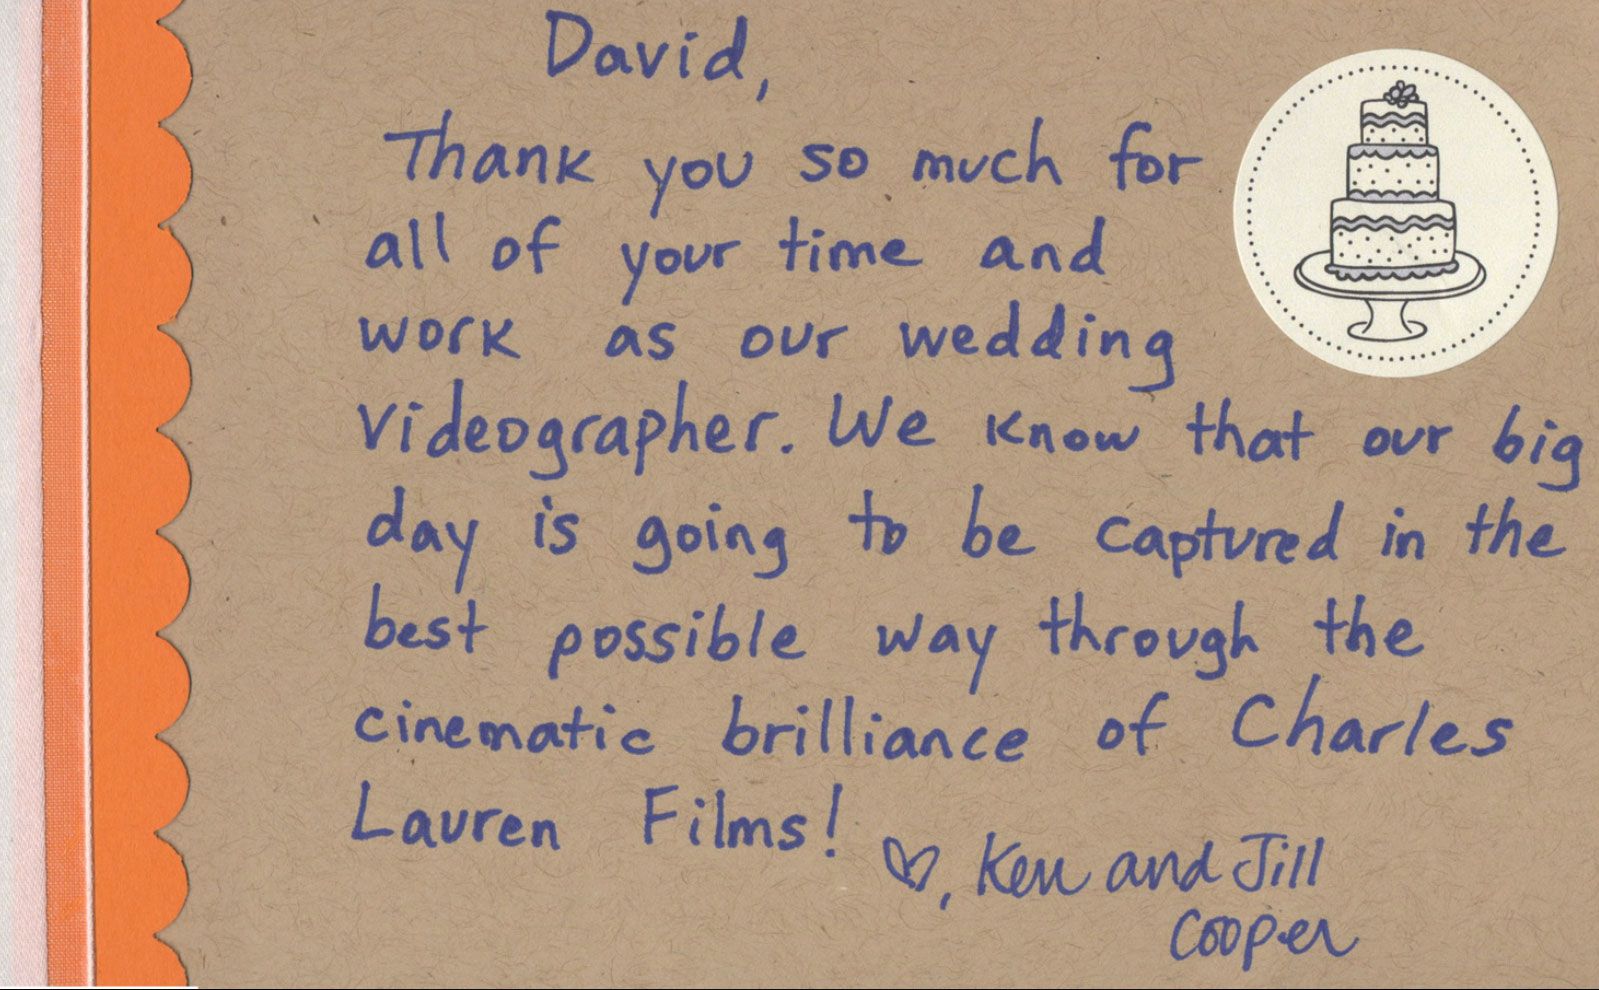 David,
Thank you so much for
all of your time and
work as our wedding
videographer. We know that our big
day is going to be captured in the
best possible way through the
cinematic brilliance of Charles
Lauren Films!
♡, Ken and Jill
Cooper